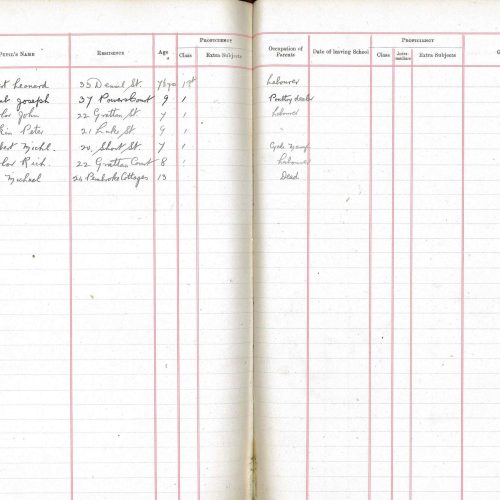 PROFICIENCY
PUPIL'S NAME RESIDENCE Age Class Extra Subjects
Occupation of Parents Date of leaving School PROFICIENCY Class Extra Subjects
Leonard 35 Denzil St. 1st Labourer
Joseph 37 Powerscourt 9 1 Poultry dealer
John 22 Grattan St 7 1 Labourer
Peter 21 Luke St 1 "
Michl. 20 Short St. 7 1
Rich. 22 Grattan Court 8 1 Labourer
Michael Pembroke Cottages 13 Dead